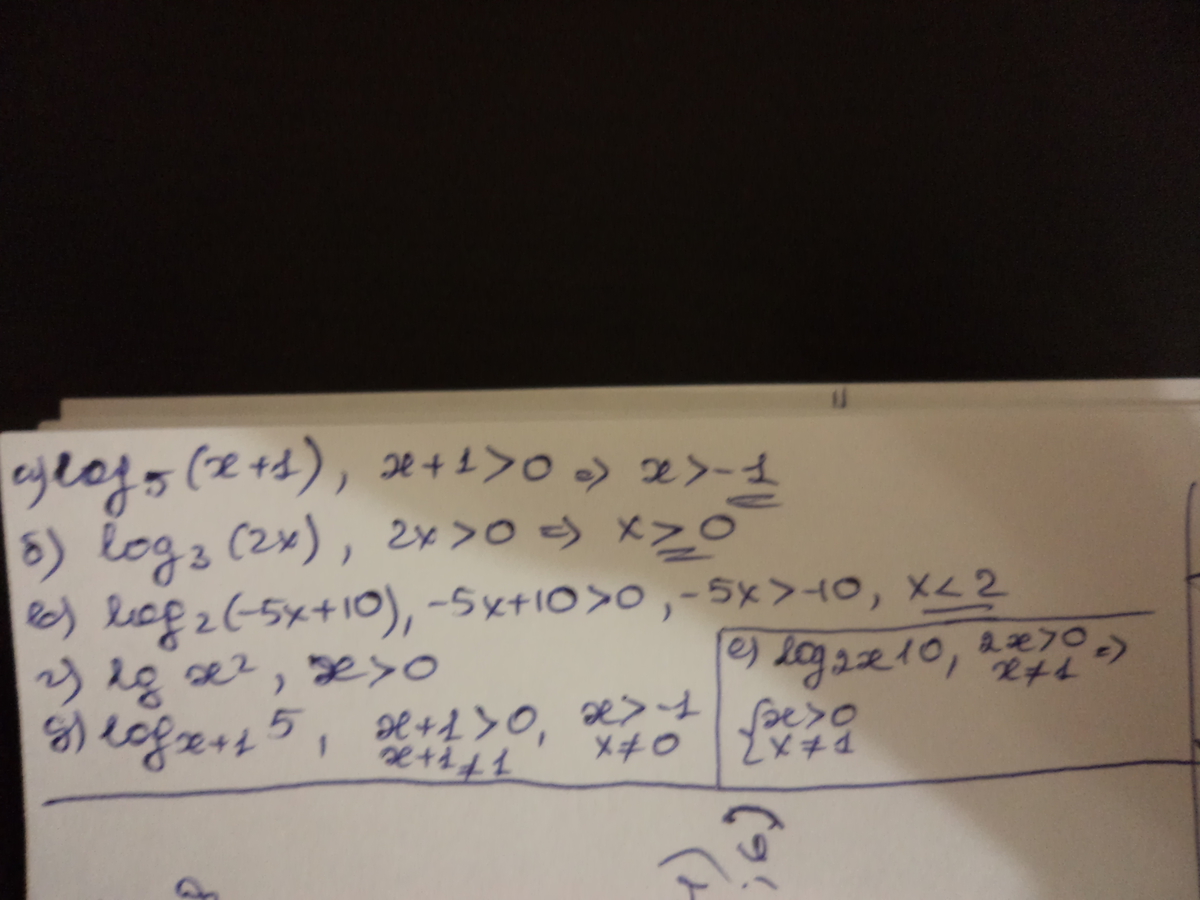 а) log₅(x+1), x+1>0 => x>-1
б) log₃(2x), 2x>0 => x>0
в) log₂(-5x+10), -5x+10>0, -5x>-10, x<2
г) lg x², x>0
д) logₓ₊₁5, x+1>0, x>-1
x+1≠1 x≠0
е) log₂ₓ10, 2x>0 =>
x≠1
{x>0
x≠1
; 6)